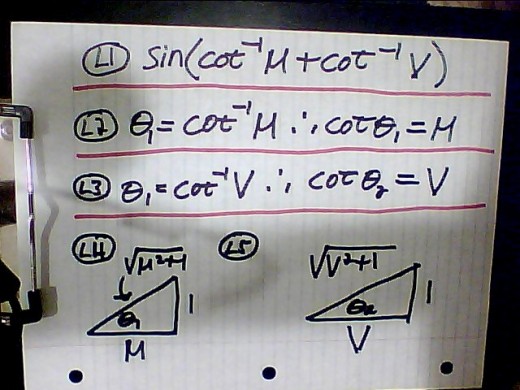 L1 sin(cot⁻¹ M + cot⁻¹ V)
L2 θ₁ = cot⁻¹ M ∴ cot θ₁ = M
L3 θ₁ = cot⁻¹ V ∴ cot θ₂ = V
L4 √M²+1 θ₁ 1 M
L5 √V²+1 θ₂ 1 V